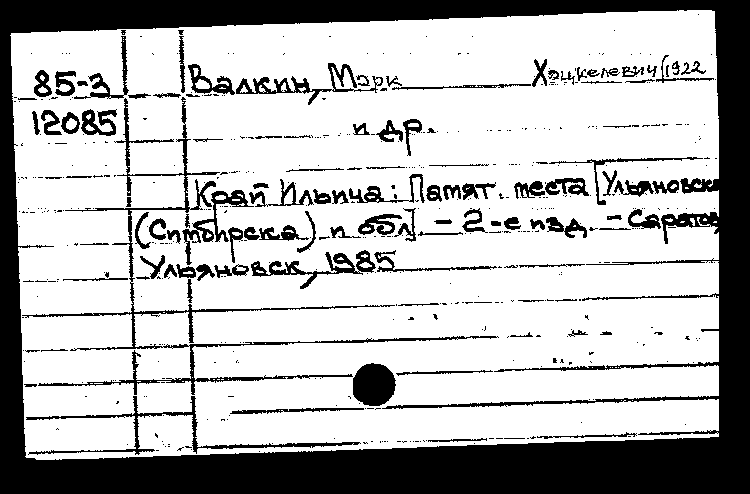 85-3 Валкин, Марк Хацкелевич (1922
12085 и др.
Край Ильича: Памят. места [Ульяновска
(Симбирска) и обл]. - 2-е изд. - Саратов,
Ульяновск, 1985